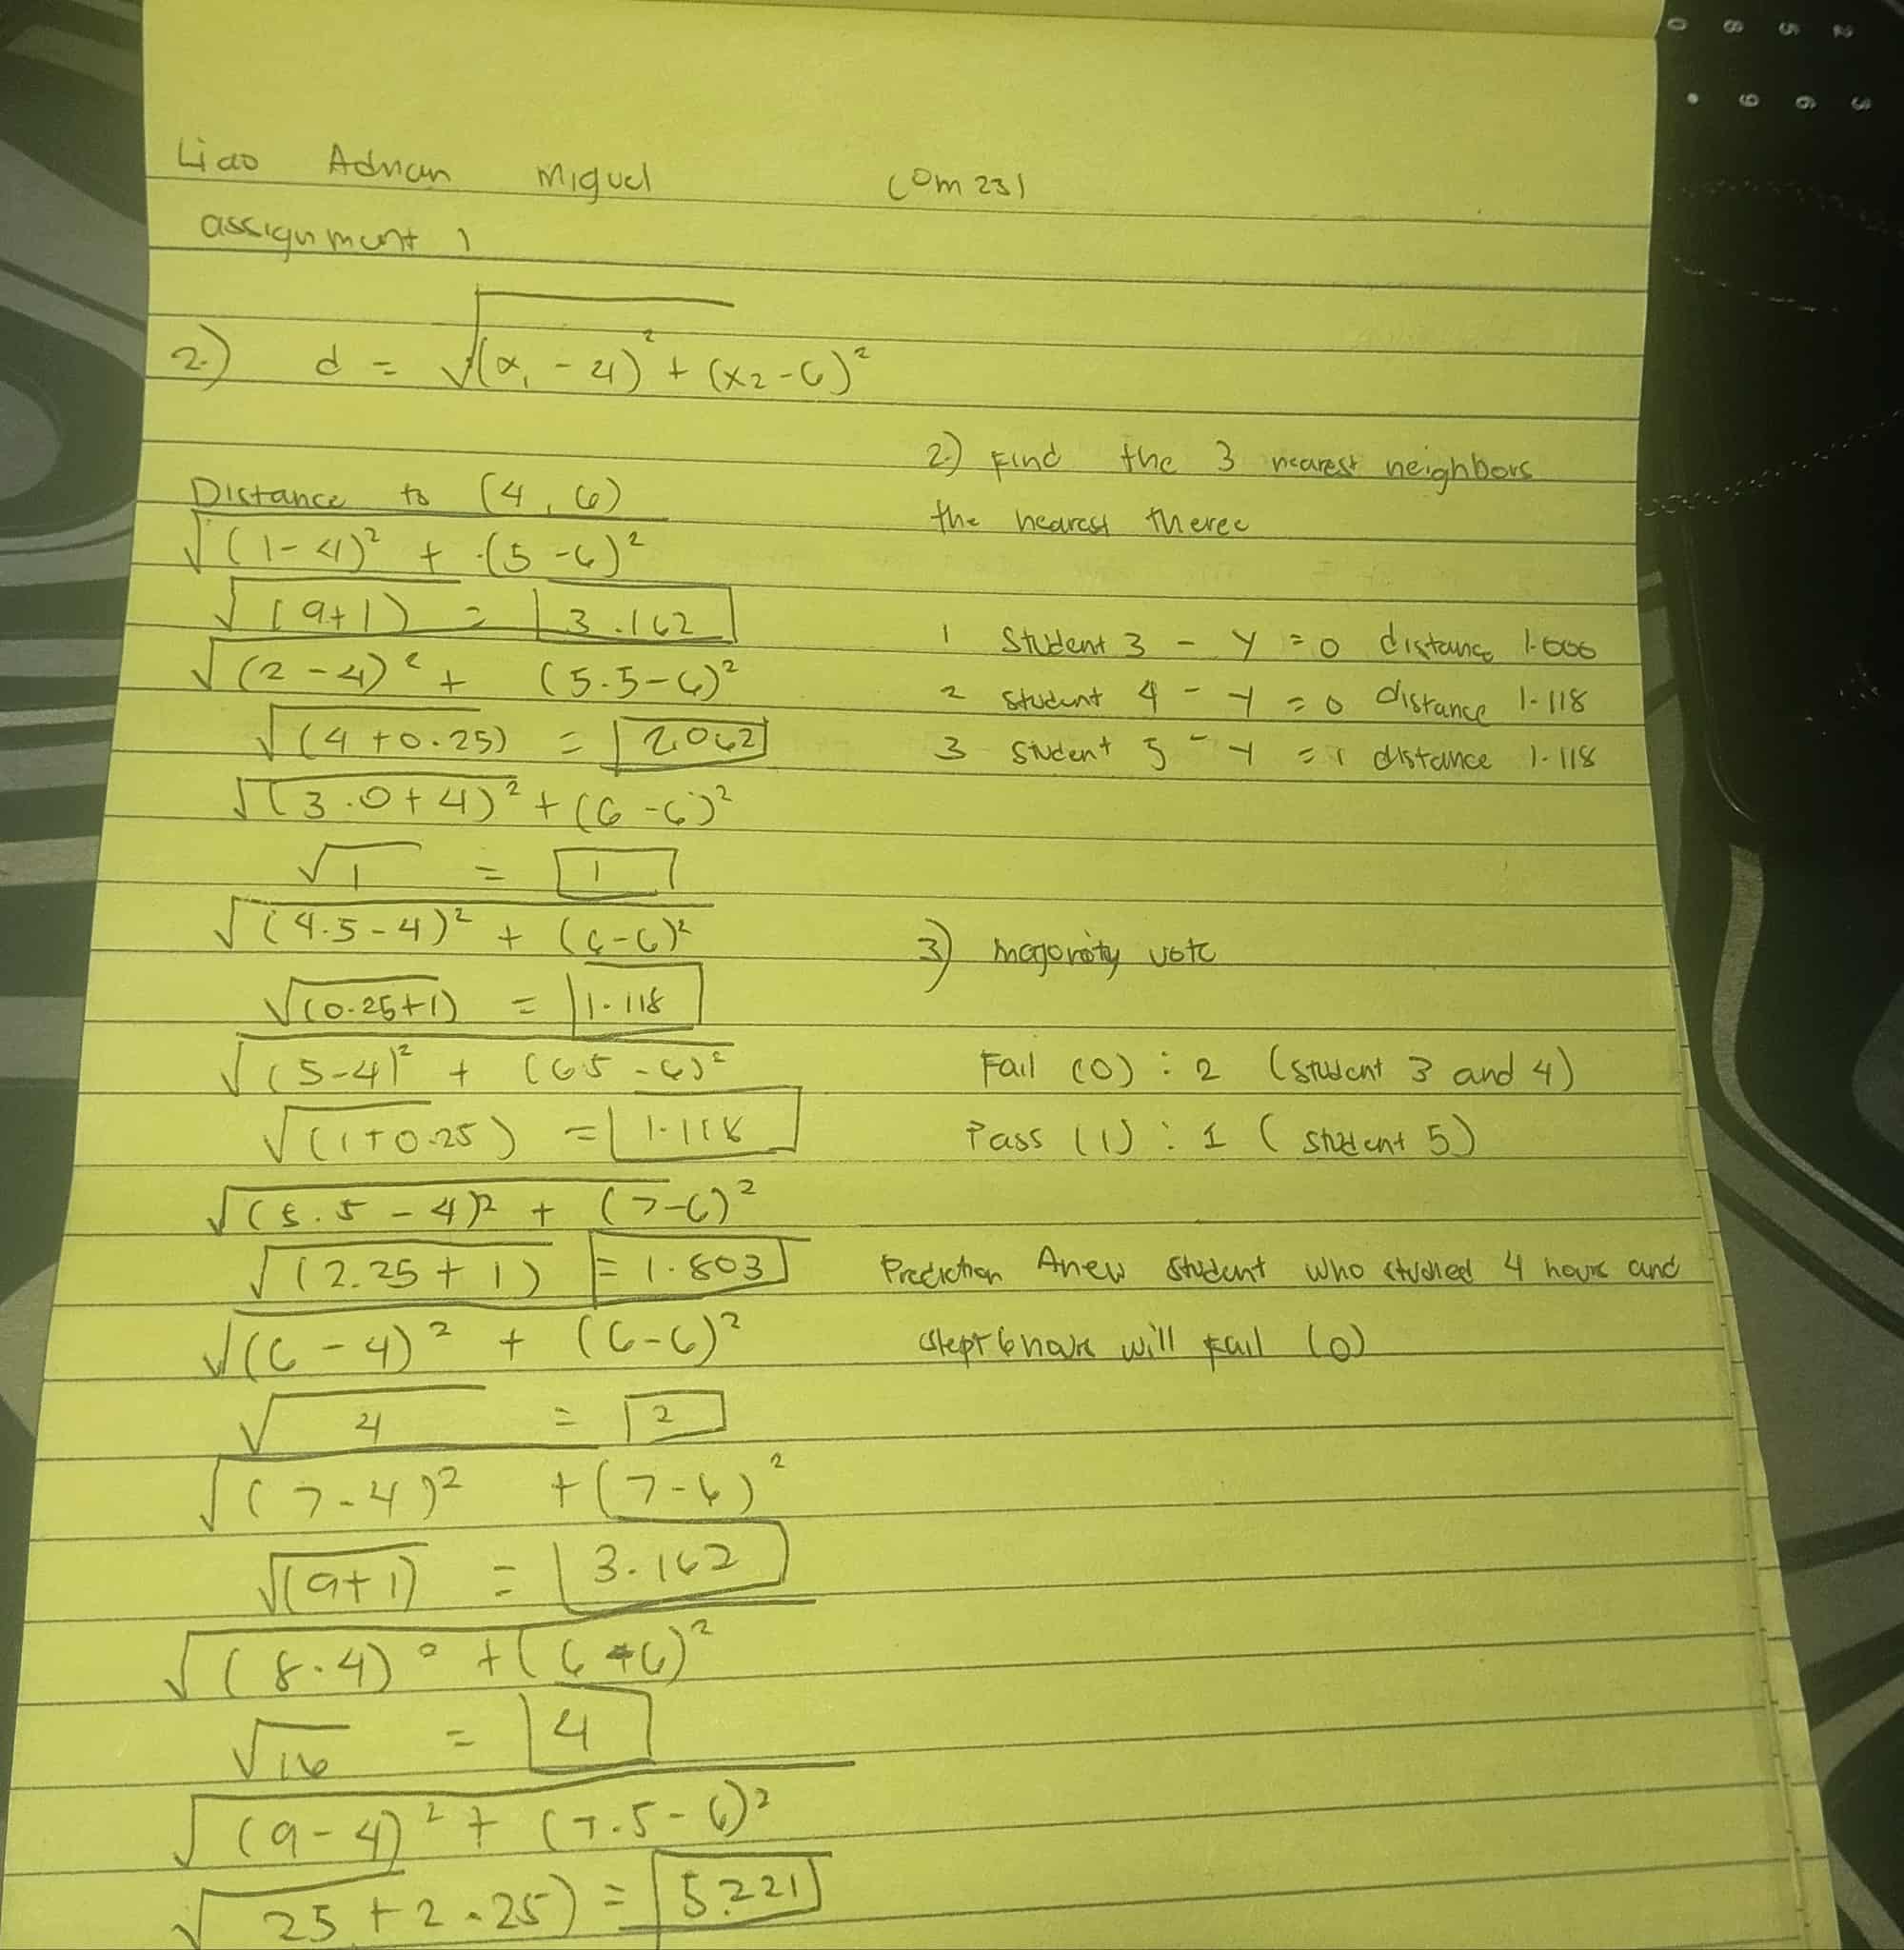 Liao Adrian Miguel com231
assignment 1
2.) d = √(x₁ - 4)² + (x₂ - 6)²
Distance to (4, 6)
√(1-4)² + (5-6)²
√(9+1) = 3.162
√(2-4)² + (5.5-6)²
√(4+0.25) = 2.062
√(3.0+4)² + (6-6)²
√1 = 1
√(4.5-4)² + (6-6)²
√(0.25+1) = 1.118
√(5-4)² + (65-6)²
√(1+0.25) = 1.118
√(5.5-4)² + (7-6)²
√(2.25+1) = 1.803
√(6-4)² + (6-6)²
√4 = 2
√(7-4)² + (7-6)²
√(9+1) = 3.162
√(8-4)² + (6-6)²
√16 = 4
√(9-4)² + (7.5-6)²
√25+2.25) = 5.221
2.) Find the 3 nearest neighbors
the nearest theree
1 Student 3 - y = 0 distance 1.000
2 student 4 - y = 0 distance 1.118
3 student 5 - y = 1 distance 1.118
3) magority vote
Fail (0) : 2 (student 3 and 4)
Pass (1) : 1 (student 5)
Prediction A new student who studied 4 hours and
slept 6 hours will fail (0)
0 8 5 2
. 9 6 3